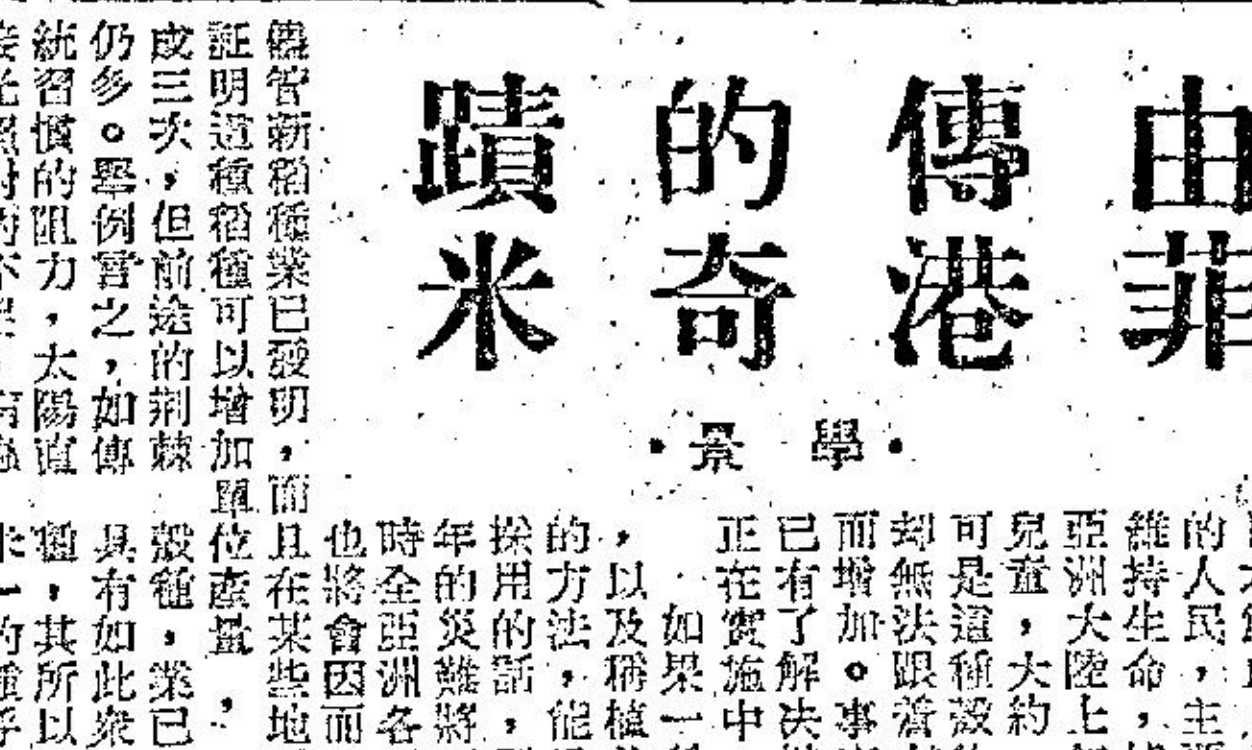 由菲
傳港
的奇
蹟米
・學景・
的人民,主
維持生命,
亞洲大陸上,
兒童,大約
可是這種穀
却無法跟着
而增加。事
已有了解决
正在實施中
如果一
,以及稱植
的方法,能
採用的話,
年的災難將
時全亞洲各
也將會因而
儘管新稻種業已發明,而且在某些地
証明這種稻種可以增加單位產量,
成三次,但前途的荆棘
仍多。舉例言之,如傳
統習慣的阻力,太陽直
穀種,業已
具有如此衆
種,其所以